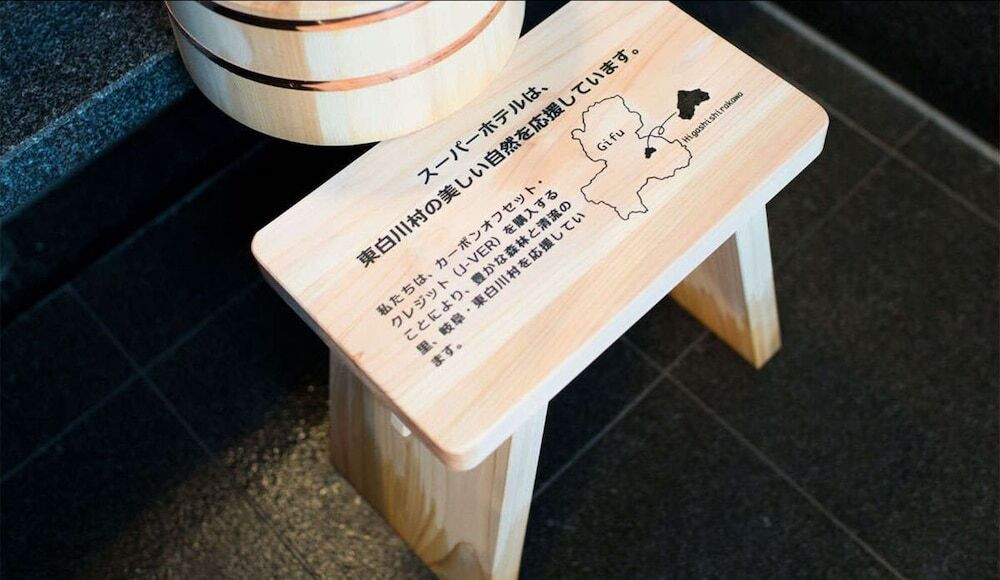 スーパーホテルは、
東白川村の美しい自然を応援しています。
私たちは、カーボンオフセット・
クレジット（J-VER）を購入する
ことにより、豊かな森林と清流の
里、岐阜・東白川村を応援してい
ます。
Gifu
Higashishirakawa